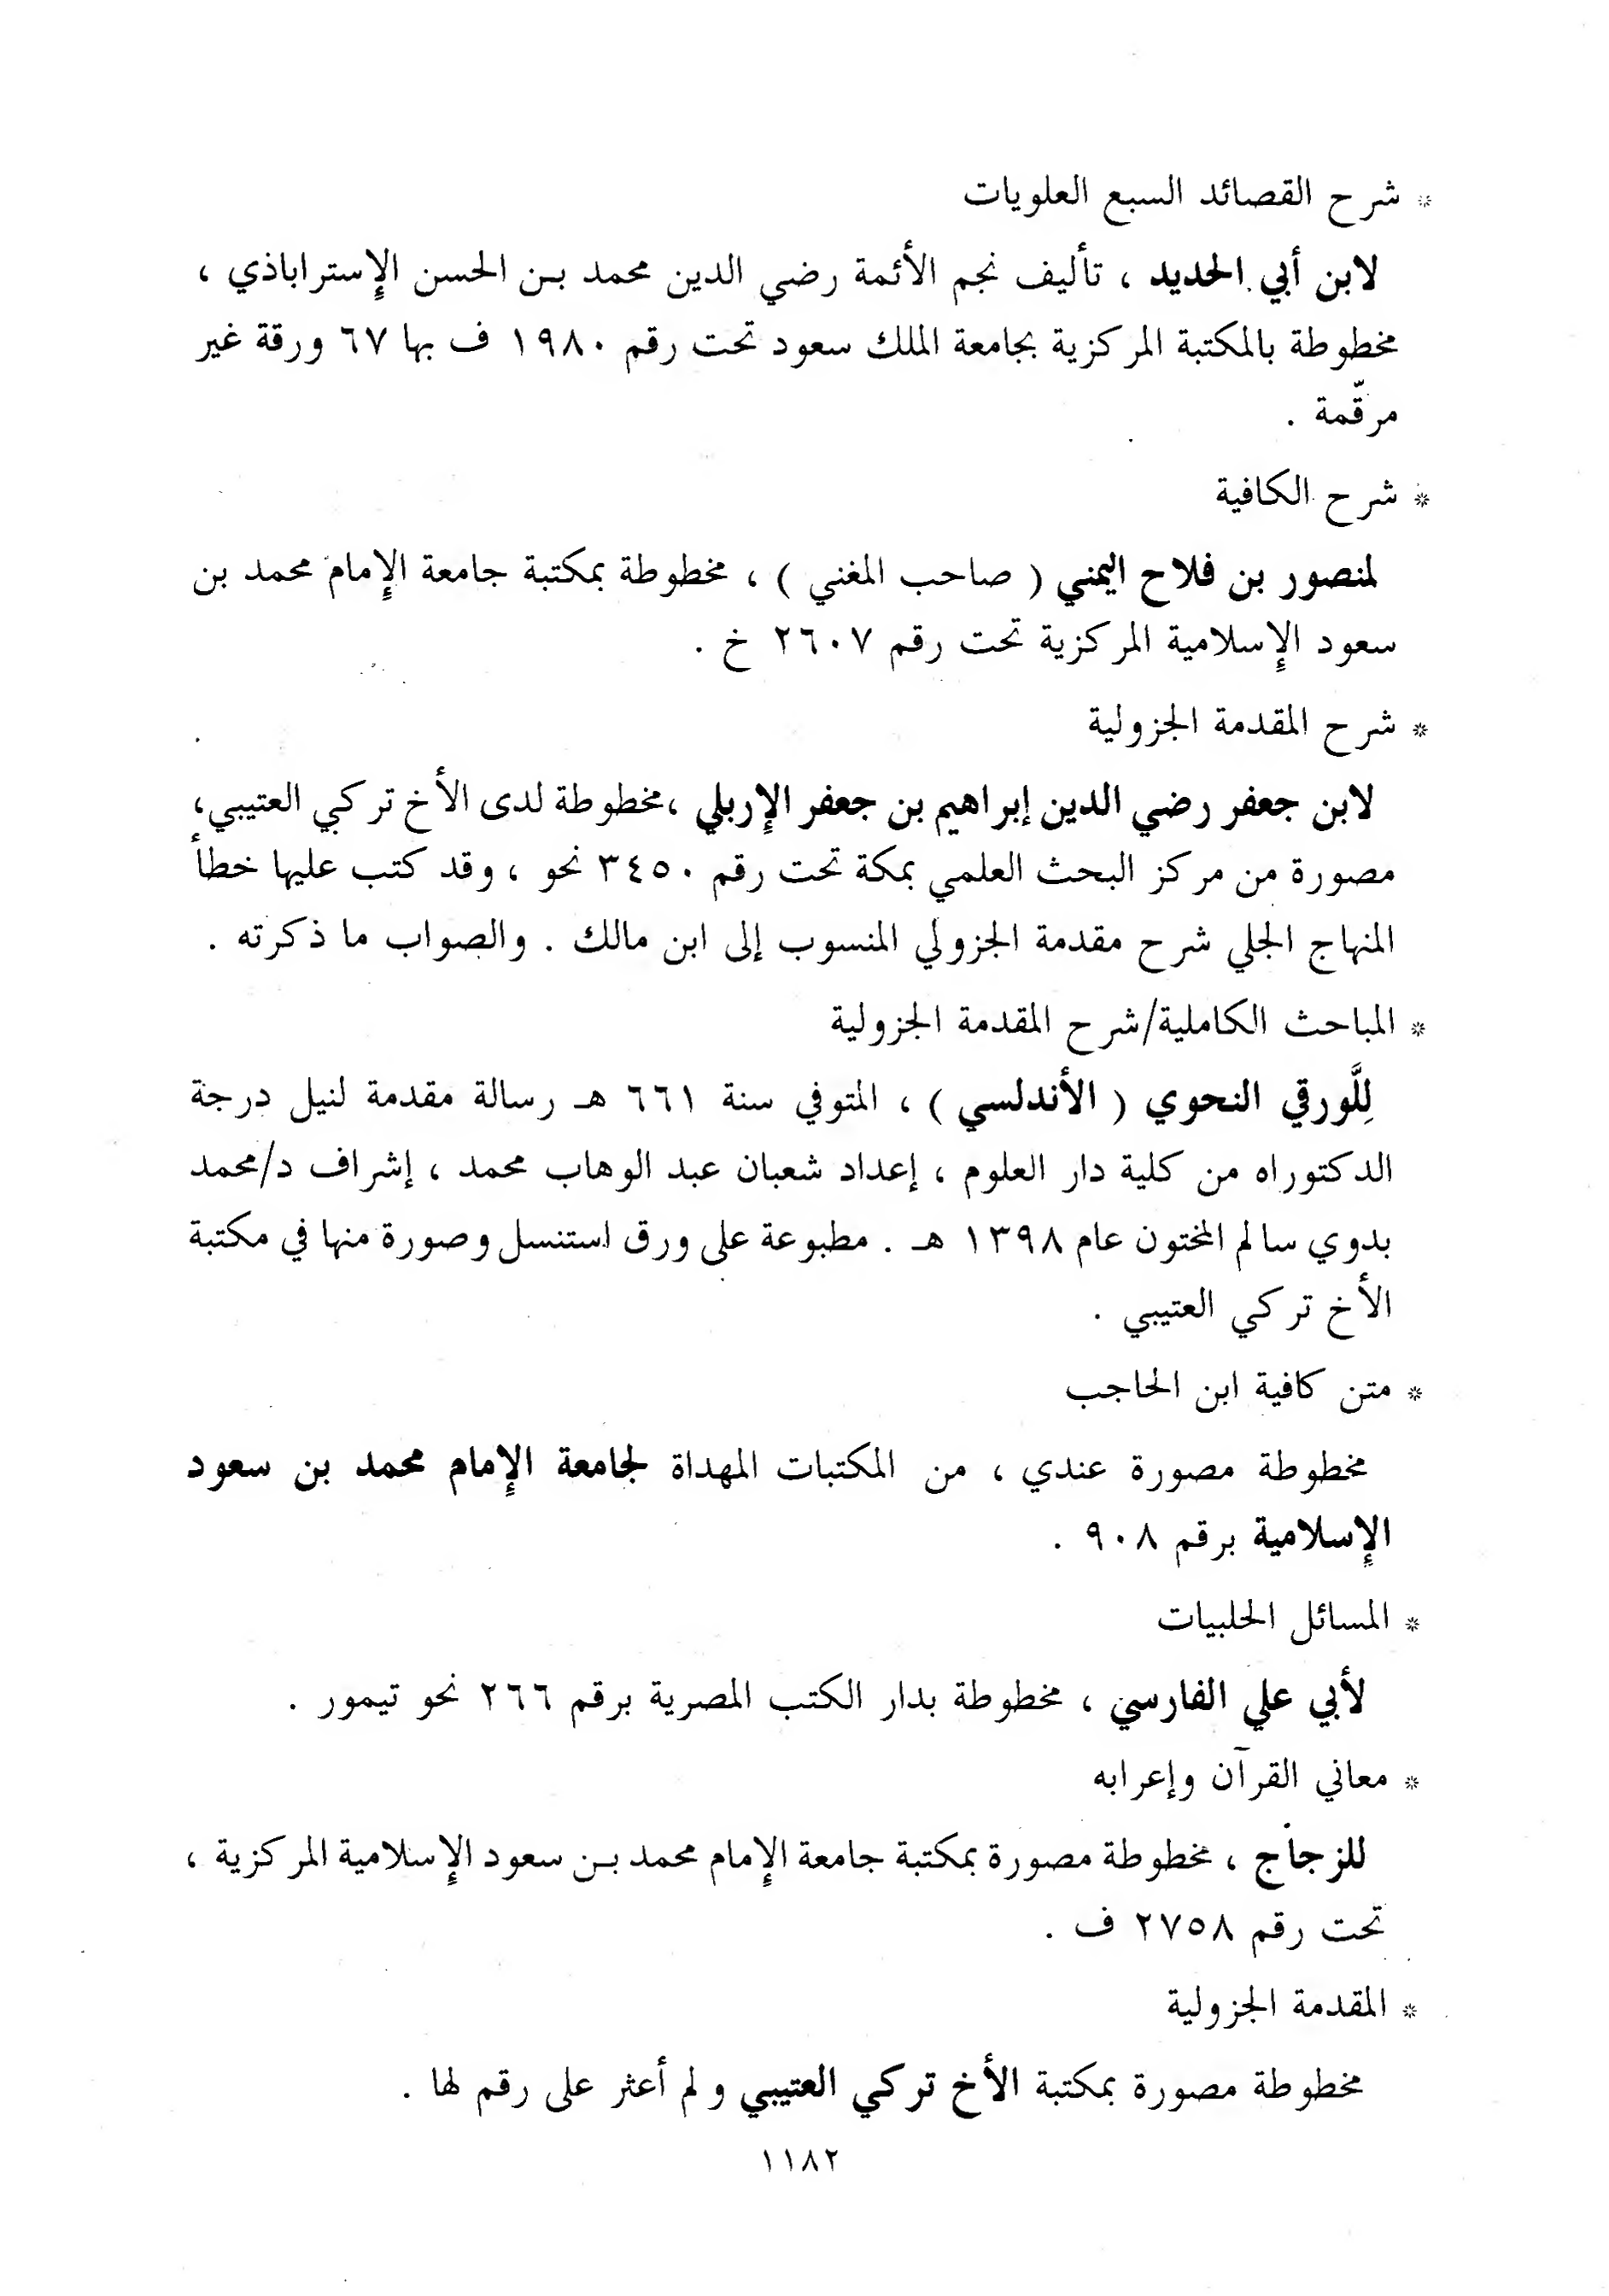 * شرح القصائد السبع العلويات
لابن أبي الحديد ، تأليف نجم الأئمة رضي الدين محمد بن الحسن الإستراباذي ،
مخطوطة بالمكتبة المركزية بجامعة الملك سعود تحت رقم ١٩٨٠ ف بها ٦٧ ورقة غير
مرقّمة .
* شرح الكافية
لمنصور بن فلاح اليمني ( صاحب المغني ) ، مخطوطة بمكتبة جامعة الإمام محمد بن
سعود الإسلامية المركزية تحت رقم ٢٦٠٧ خ .
* شرح المقدمة الجزولية
لابن جعفر رضي الدين إبراهيم بن جعفر الإربلي ،مخطوطة لدى الأخ تركي العتيبي،
مصورة من مركز البحث العلمي بمكة تحت رقم ٣٤٥٠ نحو ، وقد كتب عليها خطأ
المنهاج الجلي شرح مقدمة الجزولي المنسوب إلى ابن مالك . والصواب ما ذكرته .
* المباحث الكاملية/شرح المقدمة الجزولية
لِلَّورقي النحوي ( الأندلسي ) ، المتوفي سنة ٦٦١ هـ رسالة مقدمة لنيل درجة
الدكتوراه من كلية دار العلوم ، إعداد شعبان عبد الوهاب محمد ، إشراف د/محمد
بدوي سالم المختون عام ١٣٩٨ هـ . مطبوعة على ورق استنسل وصورة منها في مكتبة
الأخ تركي العتيبي .
* متن كافية ابن الحاجب
مخطوطة مصورة عندي ، من المكتبات المهداة لجامعة الإمام محمد بن سعود
الإسلامية برقم ٩٠٨ .
* المسائل الحلبيات
لأبي علي الفارسي ، مخطوطة بدار الكتب المصرية برقم ٢٦٦ نحو تيمور .
* معاني القرآن وإعرابه
للزجاج ، مخطوطة مصورة بمكتبة جامعة الإمام محمد بن سعود الإسلامية المركزية ،
تحت رقم ٢٧٥٨ ف .
* المقدمة الجزولية
مخطوطة مصورة بمكتبة الأخ تركي العتيبي و لم أعثر على رقم لها .
١١٨٢